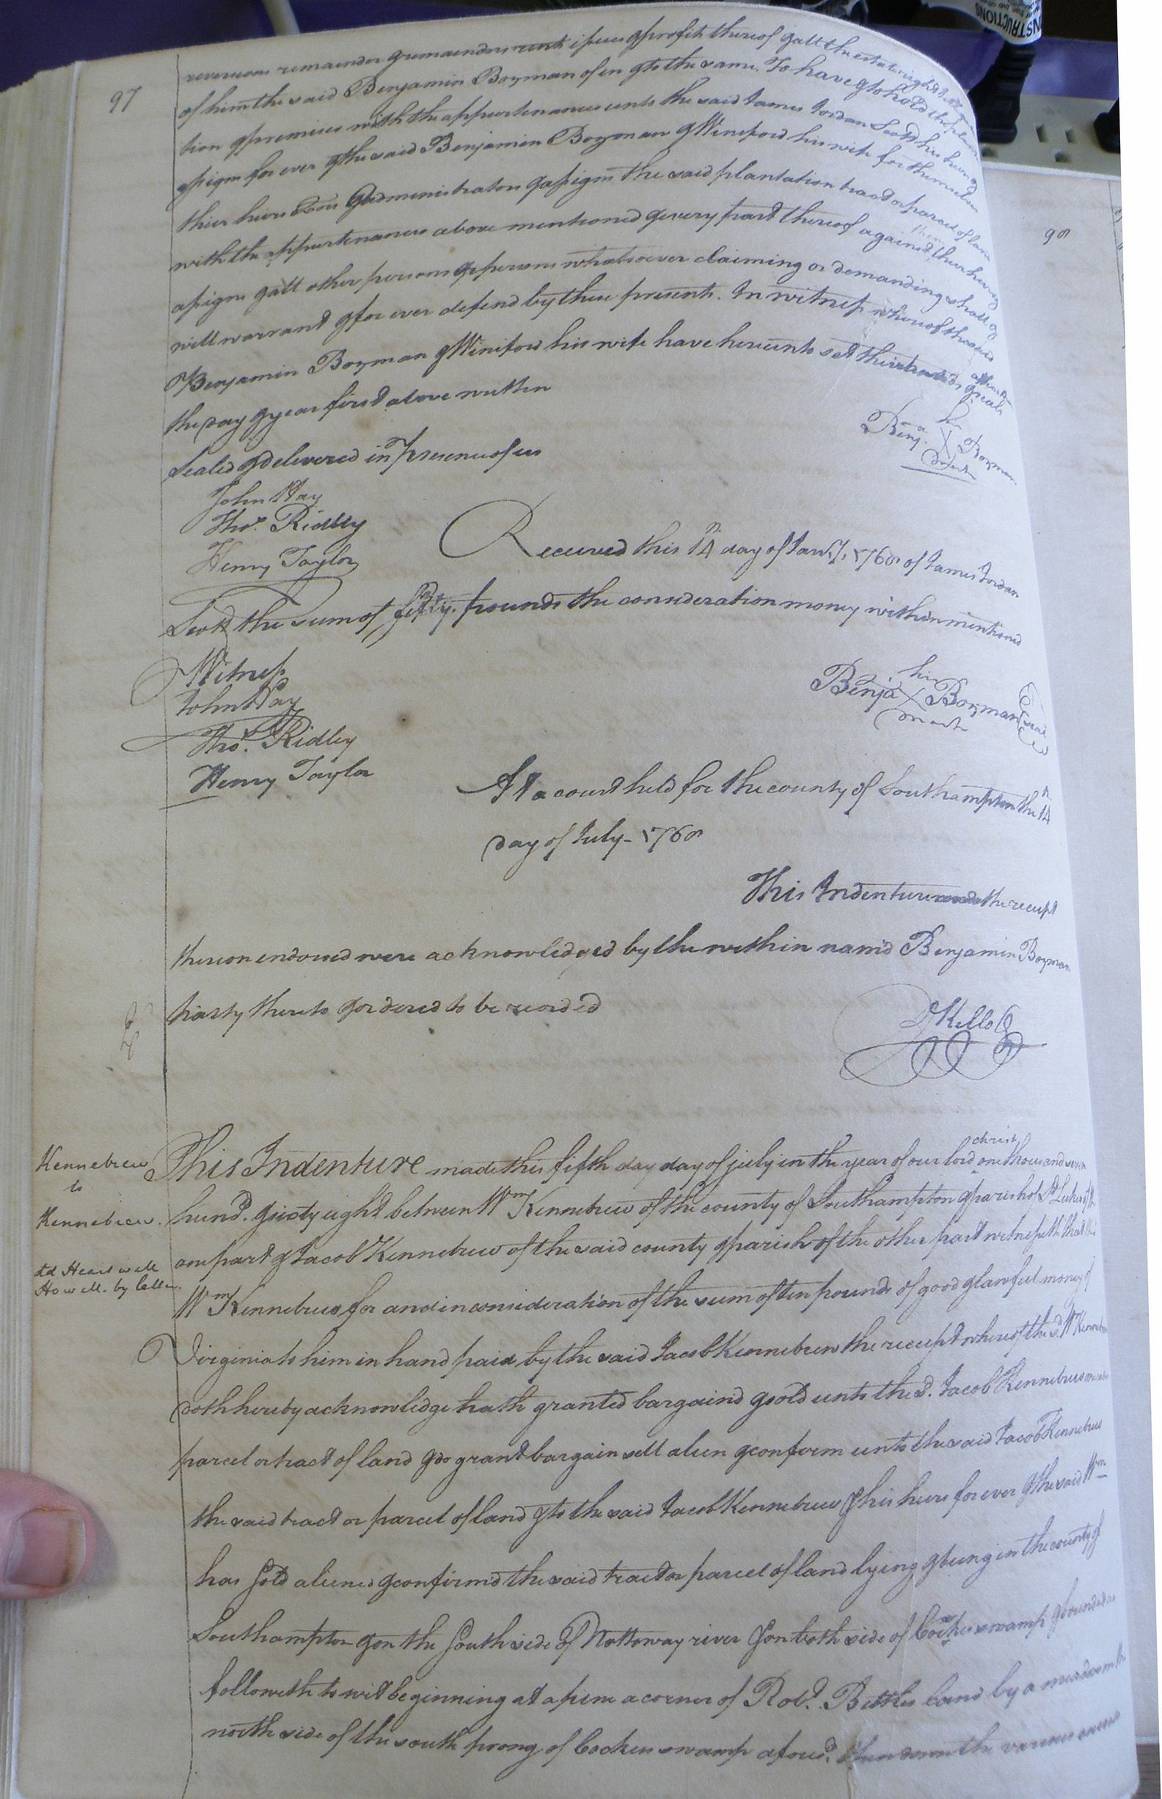 97
reversions remainder & remainders rents issues & profits thereof & all the estate right
of him the said Benjamin Bozman of in & to the same To have & to hold the
tion & premises with the appurtenances unto the said James Jordan Scott his heirs
assigns for ever & the said Benjamin Bozman & Wineford his wife for themselves
thier heirs Exrs & administrators & assigns the said plantation tract or parcel of land
with the appurtenances above mentioned & every part thereof against their heirs
assigns & all other persons & persons whatsoever claiming or demanding shall &
will warrant & for ever defend by these presents. In witness whereof the said
Benjamin Bozman & Wineford his wife have hereunto set their hands & seals
the day & year first above written
Sealed & delivered in presence of us
Benj. his X Bozman
mark
John Hay
Thos. Ridley
Henry Taylor
Received this 14 day of Jany. 1768 of James Jordan
Scott the sum of fifty pounds the consideration money within mentioned
Witness
John Hay
Thos. Ridley
Henry Taylor
Benja his X Bozman Seal
mark
At a court held for the county of Southampton the 14
day of July - 1768
This Indenture the receipt
thereon endorsed were acknowledged by the within named Benjamin Bozman
party thereto & ordered to be recorded
Kello
98
Kennebrew
to
Kennebrew.
dd Heartwell
Howell. by letter
This Indenture made this fifth day day of july in the year of our lord christ one thousand seven
hund. & sixty eight between Wm Kennebrew of the county of Southampton & parish of St Lukes of the
one part & Jacob Kennebrew of the said county & parish of the other part witnesseth that the
Wm Kennebrew for and in consideration of the sum of ten pounds of good & lawful money of
Virginia to him in hand paid by the said Jacob Kennebrew the receipt whereof the sd Wm Kennebrew
doth hereby acknowledge hath granted bargaind & sold unto the sd. Jacob Kennebrew
parcel or tract of land & do grant bargain sell alien & confirm unto the said Jacob Kennebrew
the said tract or parcel of land & to the said Jacob Kennebrew & his heirs for ever & the said Wm
has sold aliened & confirmd the said tract or parcel of land lying & being in the county of
Southampton & on the South side of Nottoway river & on both side of Cockes swamp & bounded as
followeth to wit beginning at a pine a corner of Robt. Bittles land by a meadow on the
north side of the south prong of Cockes swamp aforesd. then down the various